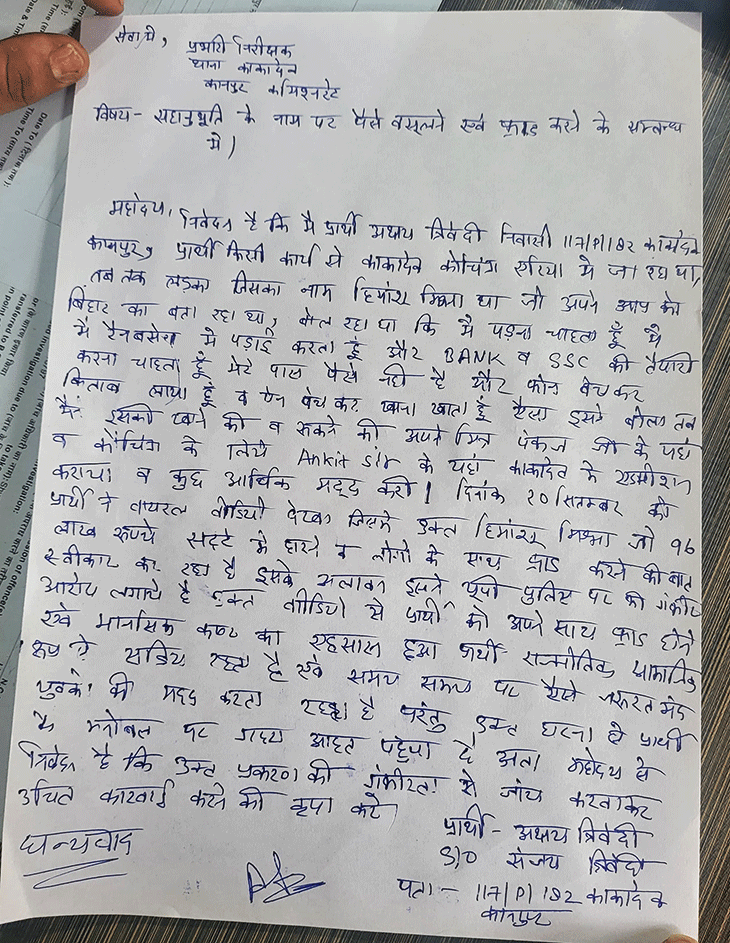 सेवा में,
प्रभारी निरीक्षक
थाना काकादेव
कानपुर कमिश्नरेट
विषय - सहानुभूति के नाम पर पैसे वसूलने एवं फ्राड करने के सम्बन्ध
में।
महोदय,
निवेदन है कि मैं प्रार्थी अक्षय त्रिवेदी निवासी 117/P/182 काकादेव
कानपुर, प्रार्थी किसी कार्य से काकादेव कोचिंग एरिया में जा रहा था,
तब तक लड़का जिसका नाम हिमांशु मिश्रा था जो अपने आप को
बिहार का बता रहा था, बोल रहा था कि मैं पढ़ना चाहता हूँ मैं
में रैनबसेरा में पढ़ाई करता हूँ और BANK व SSC की तैयारी
करना चाहता हूँ मेरे पास पैसे नहीं है और फोन बेच कर
किताब लाया हूँ व पेन बेच कर खाना खाता हूँ ऐसा इसने बोला तब
मैंने इसकी खाने की व रुकने की अपने मित्र पंकज जी के यहां
व कोचिंग के लिये Ankit Sir के यहां काकादेव में एडमीशन
कराया व कुछ आर्थिक मदद करी। दिनांक 20 सितम्बर को
प्रार्थी ने वायरल वीडियो देखा जिसमें उक्त हिमांशु मिश्रा जो 96
लाख रुपये सट्टे में हारने व लोगों के साथ फ्राड करने की बात
स्वीकार कर रहा है इसके अलावा इसने यूपी पुलिस पर भी गंभीर
आरोप लगाये है उक्त वीडियो से प्रार्थी को अपने साथ फ्राड होने
एवं मानसिक कष्ट का एहसास हुआ प्रार्थी राजनीतिक, सामाजिक
रूप से सक्रिय रहता है एवं समय समय पर ऐसे जरूरत मंद
युवकों की मदद करता रहता है परंतु उक्त घटना से प्रार्थी
के मनोबल पर गहरा आहत पहुंचा है अतः महोदय से
निवेदन है कि उक्त प्रकरण की गंभीरता से जांच करवाकर
उचित कारवाई करने की कृपा करें
धन्यवाद
प्रार्थी - अक्षय त्रिवेदी
S/O संजय त्रिवेदी
पता - 117/P/182 काकादेव
कानपुर